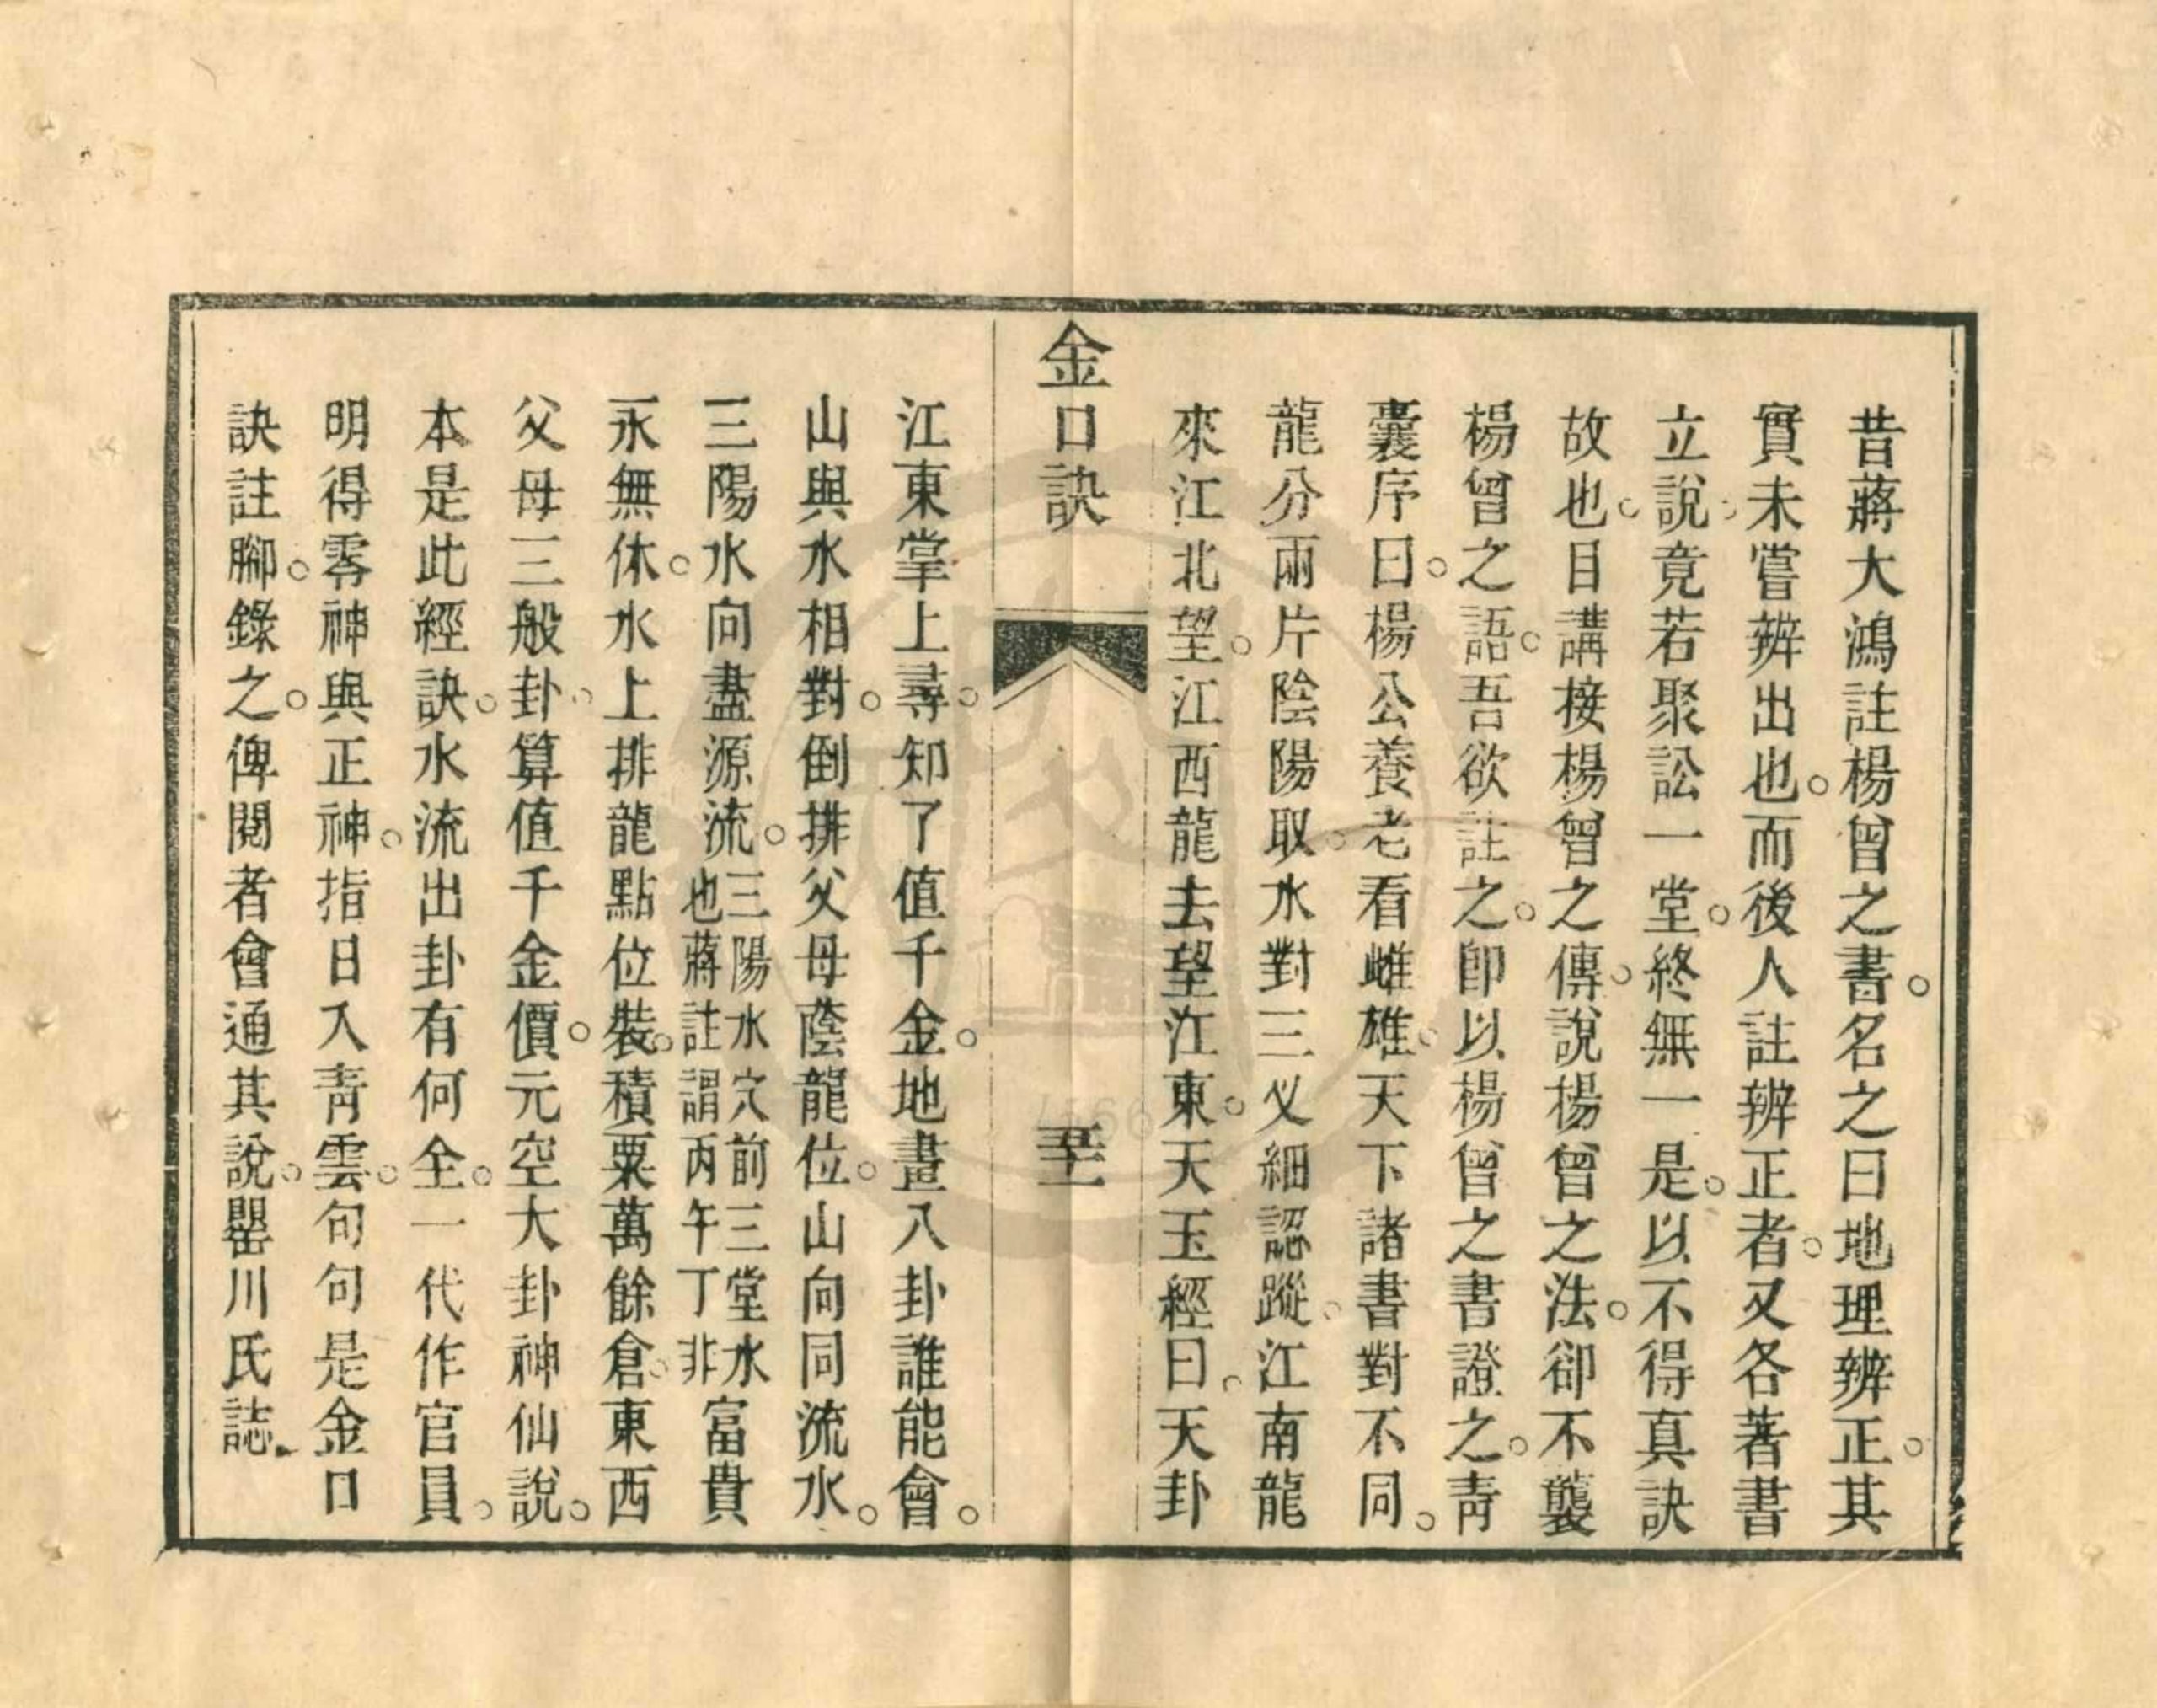 昔蔣大鴻註楊曾之書。名之曰地理辨正。其
實未嘗辨出也。而後人註辨正者。又各著書
立說。竟若聚訟一堂。終無一是。以不得真訣
故也。目講接楊曾之傳。說楊曾之法。卻不襲
楊曾之語。吾欲註之。卽以楊曾之書證之。靑
囊序曰。楊公養老看雌雄。天下諸書對不同。
龍分兩片陰陽取。水對三义細認蹤。江南龍
來江北望。江西龍去望江東。天玉經曰。天卦
金口訣
江東掌上尋。知了值千金。地畫八卦誰能會。
山與水相對。倒排父母蔭龍位。山向同流水。
三陽水向盡源流。三陽水穴前三堂水也蔣註謂丙午丁非富貴
永無休。水上排龍點位裝。積粟萬餘倉。東西
父母三般卦。算值千金價。元空大卦神仙說。
本是此經訣。水流出卦有何全。一代作官員。
明得零神與正神。指日入靑雲。句句是金口
訣註腳。錄之。俾閱者會通其說。罌川氏誌。